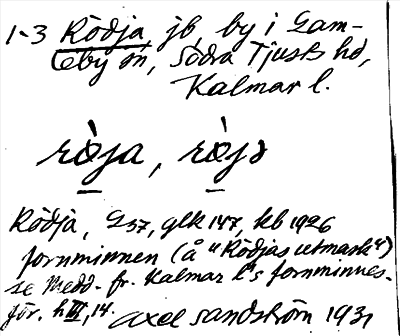 1-3 Rödja, jb, by i Gam-
leby sn, Södra Tjusts hd,
Kalmar l.
rò̱ja, rò̱jə
Rödja, G37, glk 147, kb 1926
fornminnen (å "Rödjas utmark")
se Medd. fr. Kalmar l:s fornminnes-
för. h III, 14.
Axel Sandström 1931